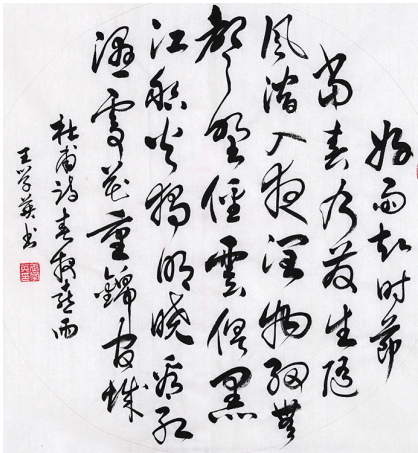 好雨知时节
当春乃发生随
风潜入夜润物细無
声野径雲俱黑
江船火独明晓看红
湿处花重錦官城
杜甫诗春夜喜雨
王学英书